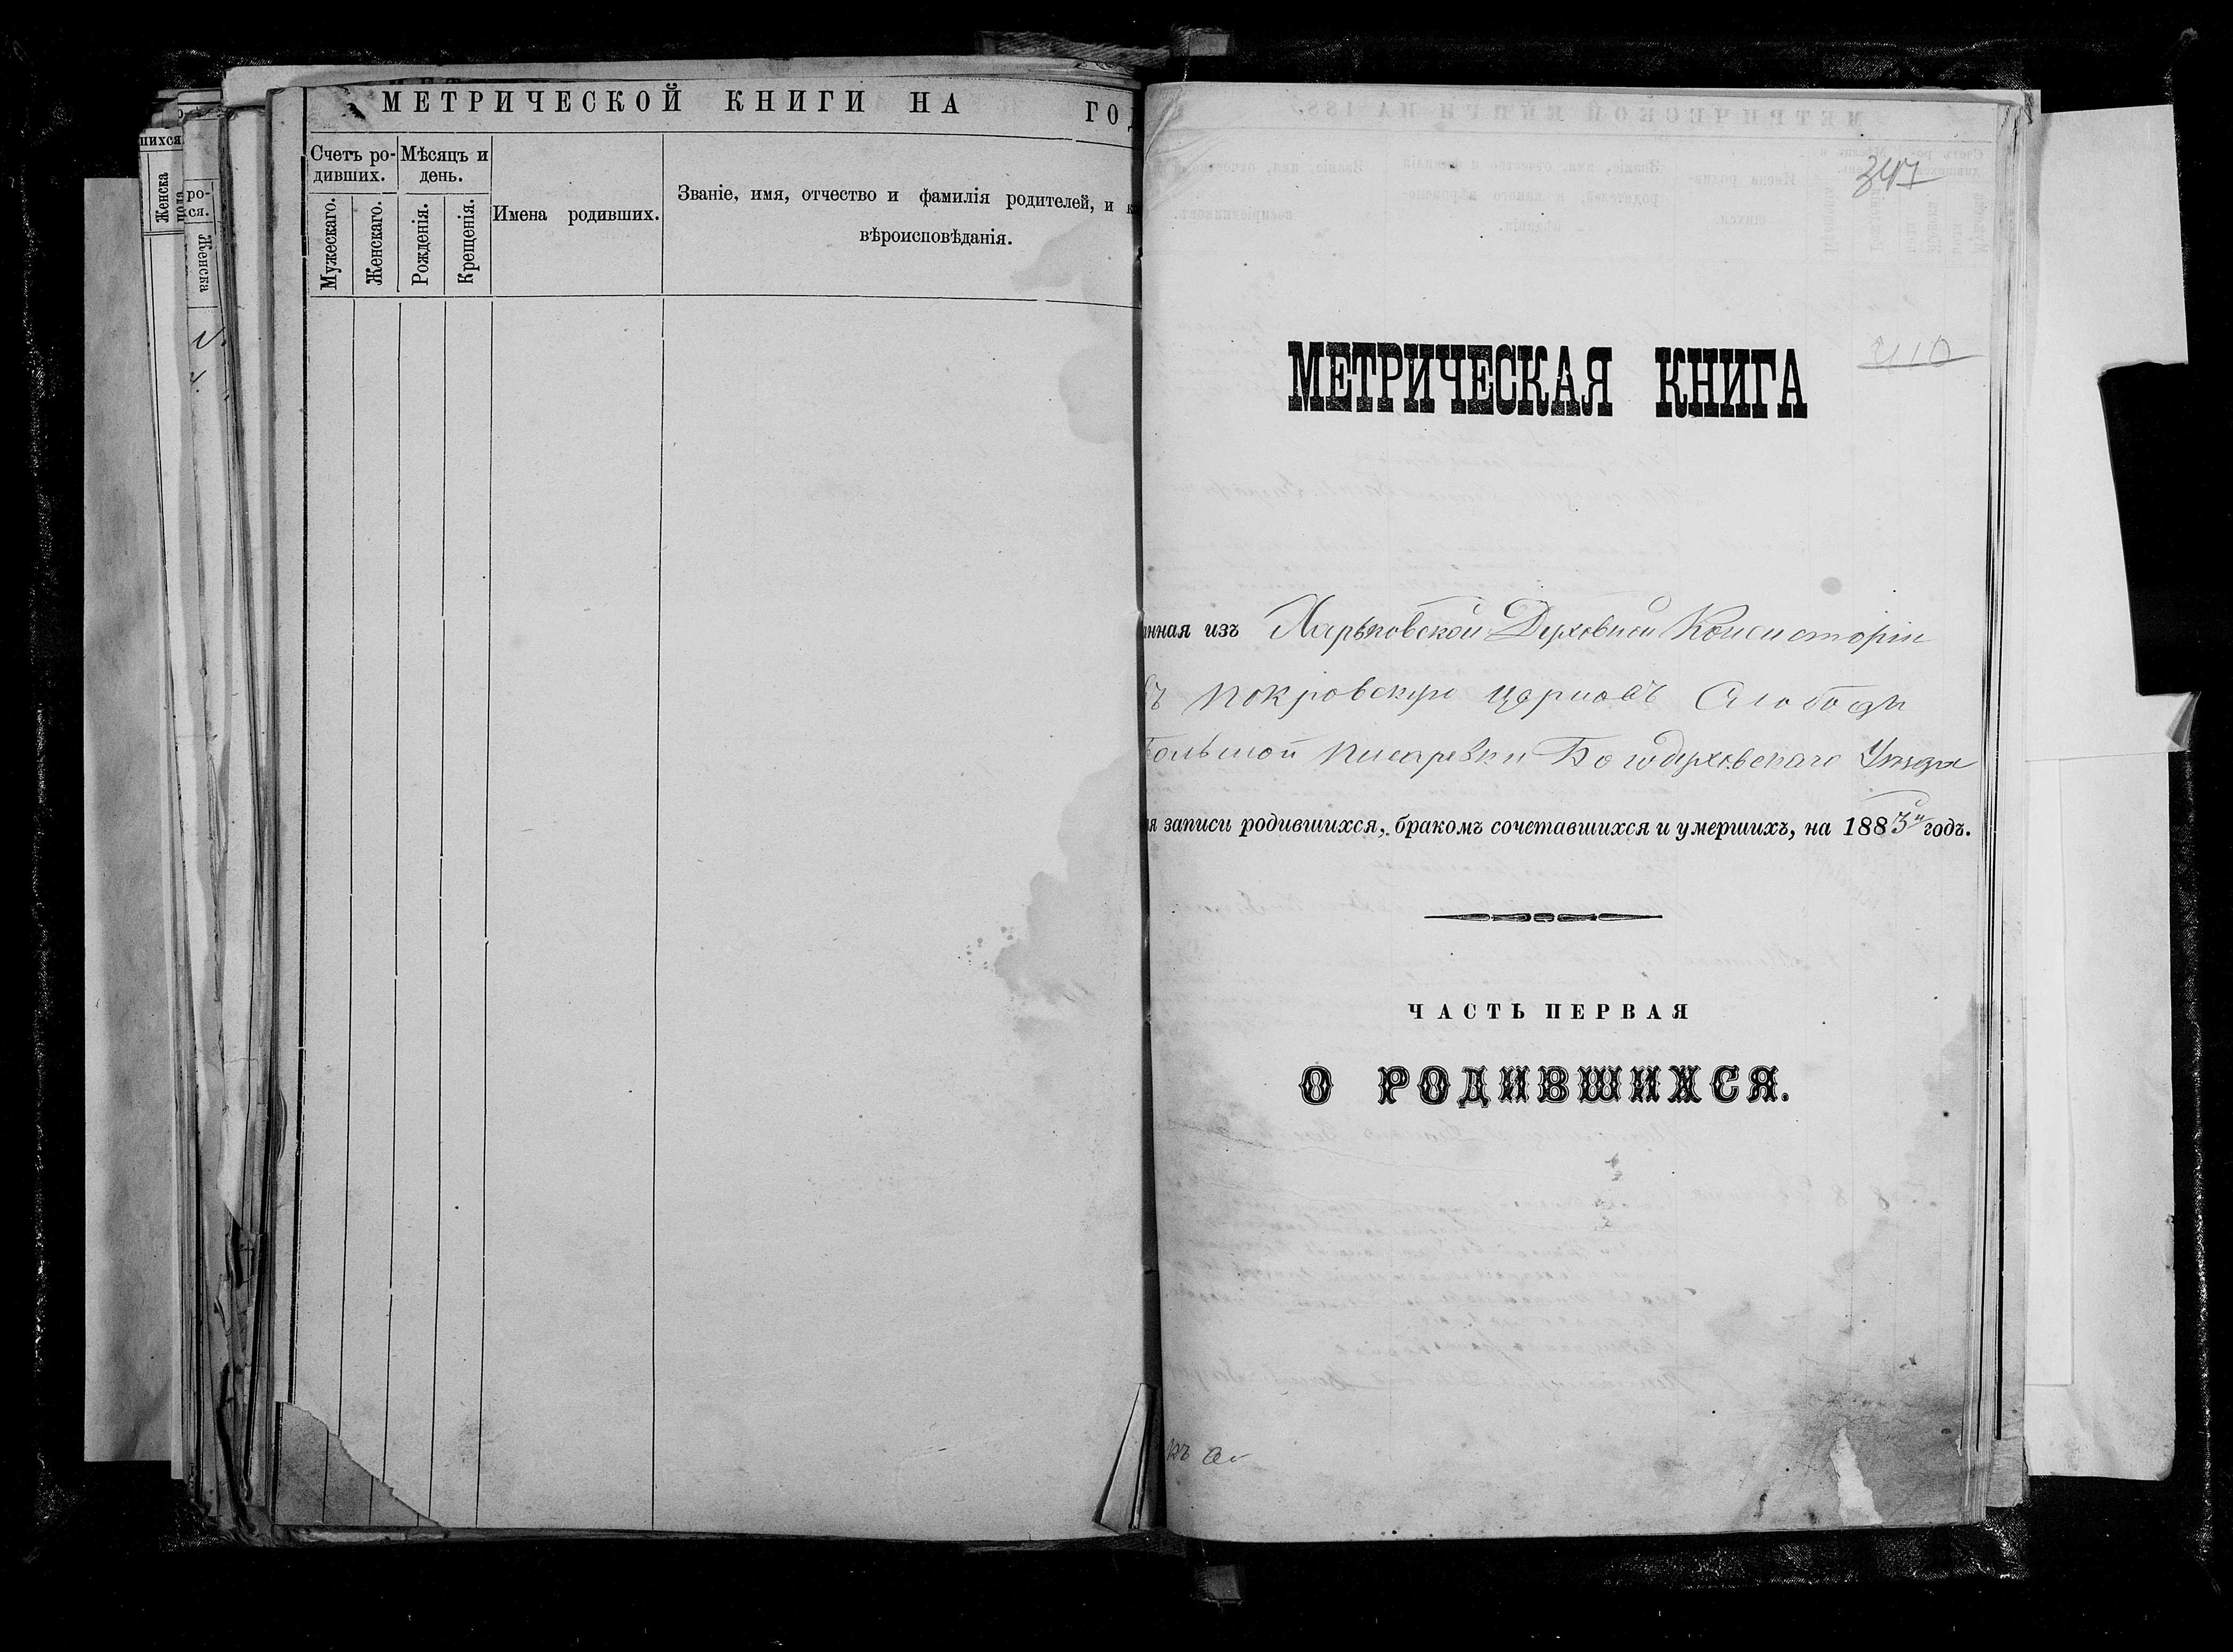 МЕТРИЧЕСКОЙ КНИГИ НА ГОД
Счетъ ро-
дивших.
Мѣсяцъ и
день.
Мужескаго.
Женскаго.
Рожденія.
Крещенія.
Имена родивших.
Званіе, имя, отчество и фамилія родителей, и к
вѣроисповѣданія.
шихся
Женска
пола
ро-
ся.
Женска
347
410
МЕТРИЧЕСКАЯ КНИГА
нная изъ Харьковской Духовной Консисторіи
въ Покровскую церковь Слободы
Большой Писаревки Богодуховскаго Уѣзда
я записи родившихся, бракомъ сочетавшихся и умершихъ, на 1883й годъ.
ЧАСТЬ ПЕРВАЯ
О РОДИВШИХСЯ.